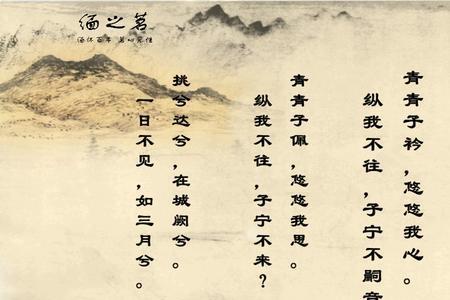 缅之茗
青青子衿,悠悠我心。
纵我不往,子宁不嗣音
青青子佩,悠悠我思。
纵我不往,子宁不来?
挑兮达兮,在城阙兮。
一日不见,如三月兮。